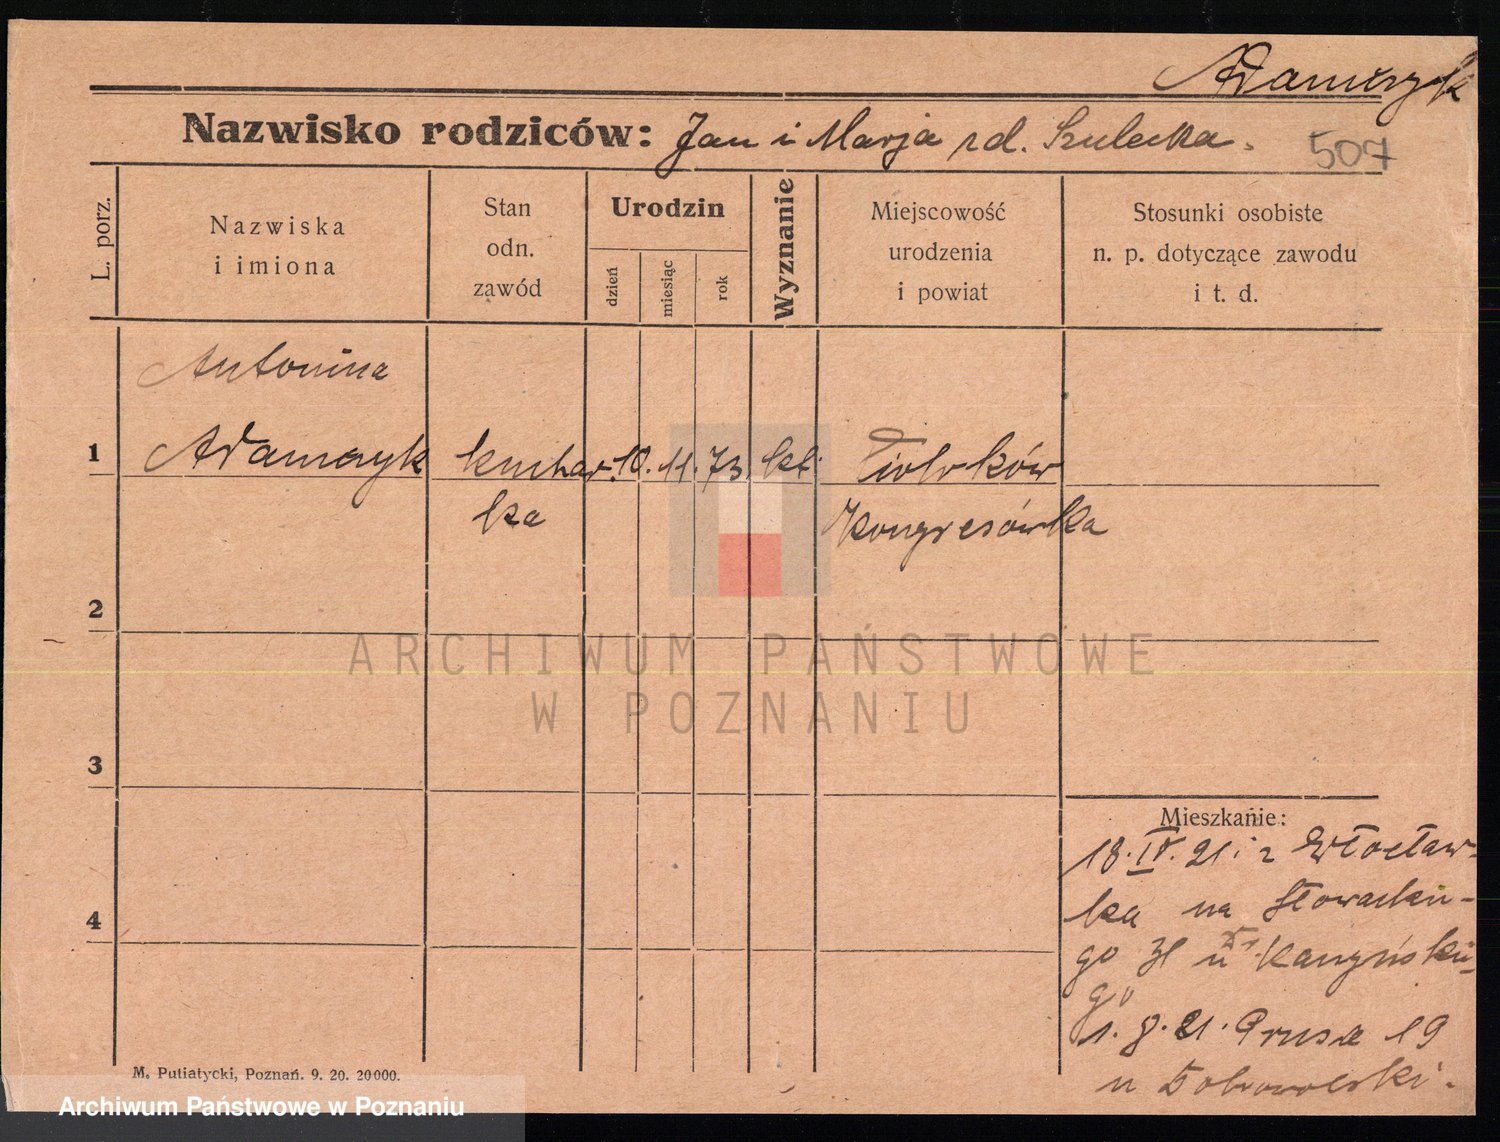 Adamczyk
Nazwisko rodziców: Jan i Marja rd. Szulecka.
507
L. porz.
Nazwiska
i imiona
Stan
odn.
zawód
Urodzin
dzień
miesiąc
rok
Wyznanie
Miejscowość
urodzenia
i powiat
Stosunki osobiste
n. p. dotyczące zawodu
i t. d.
Antonina
1 Adamczyk kuchar- 10. 11. 73. kt. Piotrków
ka Kongresówka
2
3
4
Mieszkanie:
18. IV. 21. z Włocław-
ka na Słowackie-
go u Ks. Kaczyńskie-
go
1. 8. 21. Prusa 19
u Dobrowolski.
M. Putiatycki, Poznań. 9. 20. 20000.
ARCHIWUM PAŃSTWOWE
W POZNANIU
Archiwum Państwowe w Poznaniu